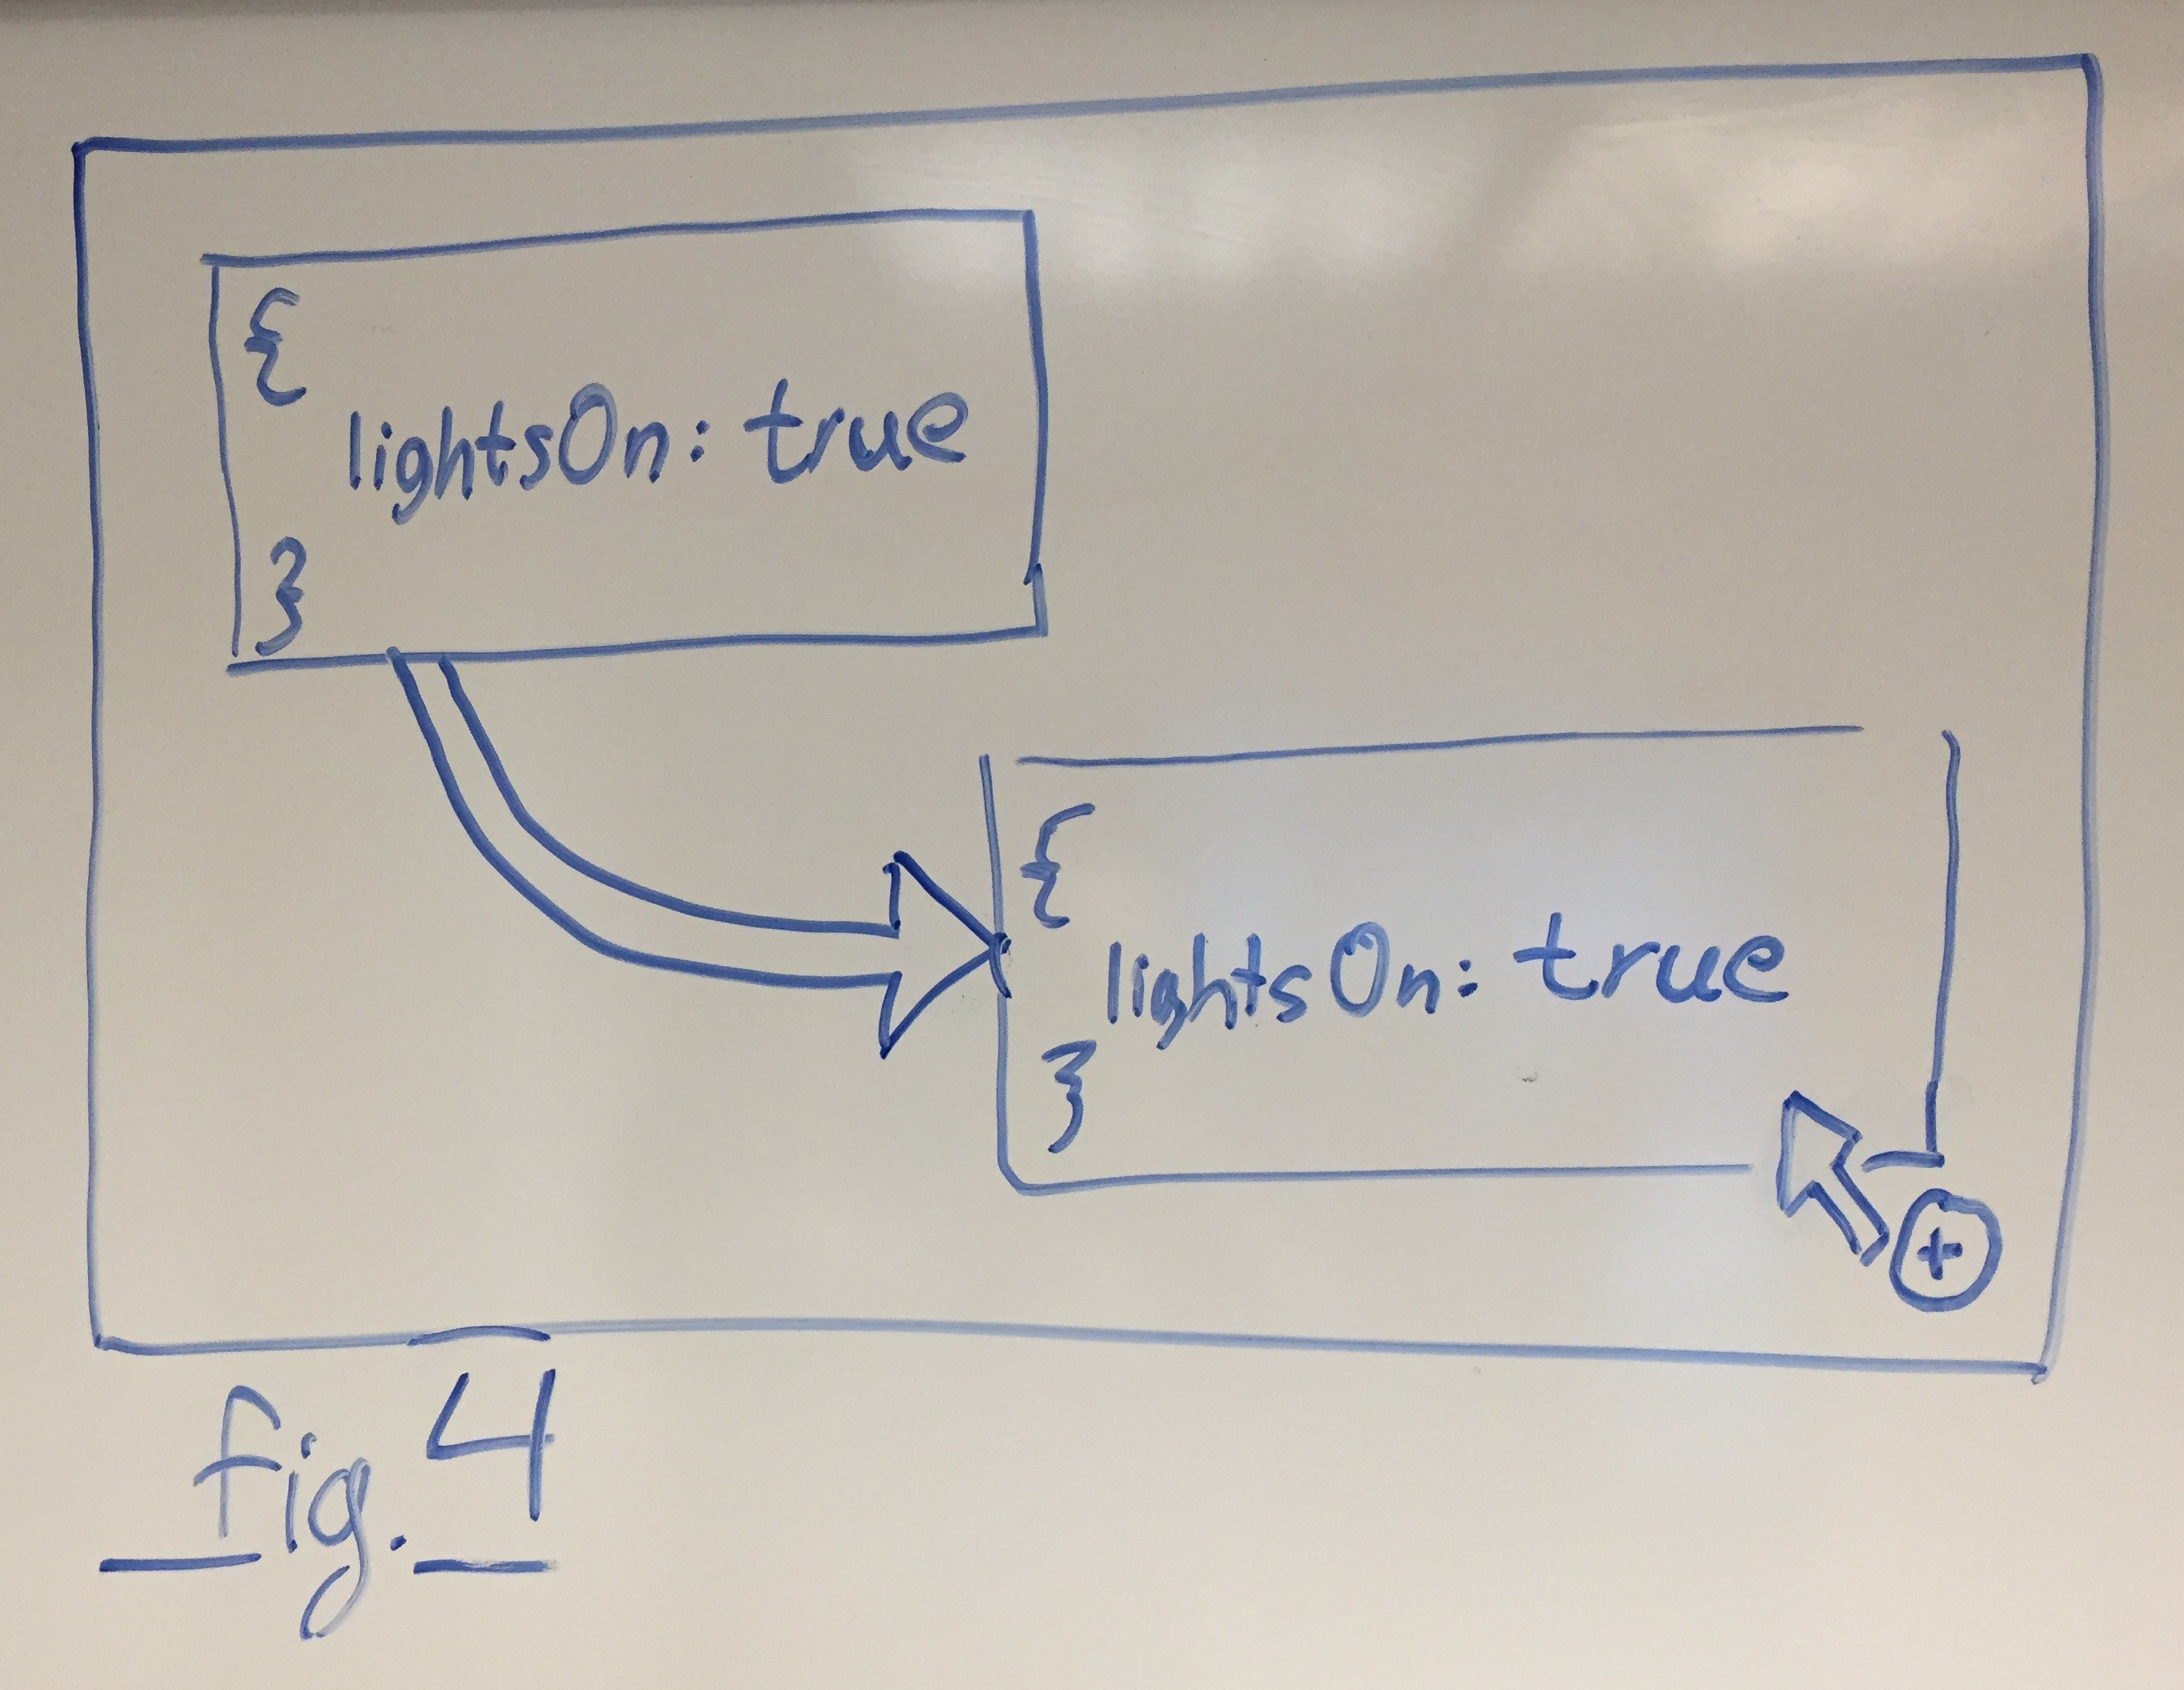 {
lightsOn: true
}
{
lightsOn: true
}
+
fig. 4